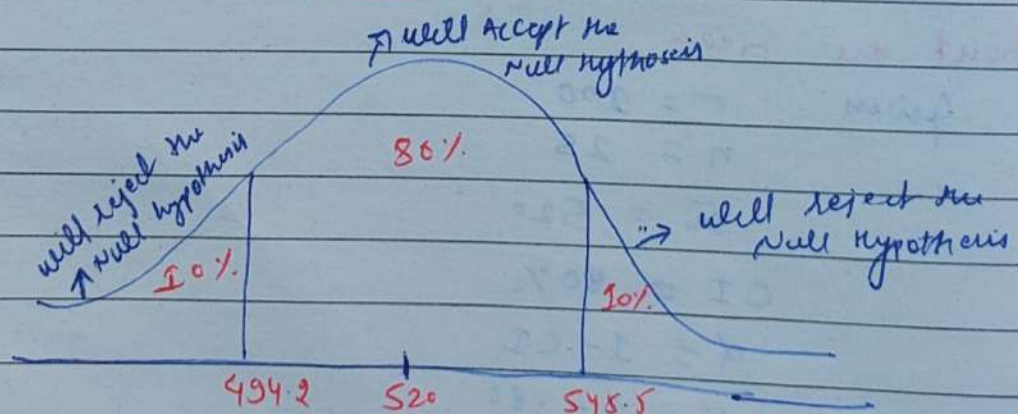 ↗ will Accept the
Null Hypthosis
will reject the
↗ Null hypothesis
80%
10%
→ will reject the
Null Hypothesis
10%
494.2
520
545.5